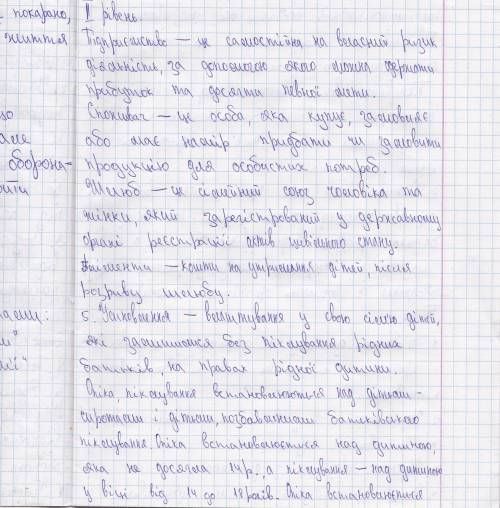 покарано,
життя
що
оборона-
ІІ рівень.
Підприємство – це самостійна на власний ризик
діяльність, за допомогою якого можна одержати
прибуток та досягти певної мети.
Споживач – це особа, яка купує, замовляє
або має намір придбати чи замовити
продукцію для особистих потреб.
Шлюб – це сімейний союз чоловіка та
жінки, який зареєстрований у державному
органі реєстрації актів цивільного стану.
Аліменти – кошти на утримання дітей, після
розриву шлюбу.
5. Усиновлення – влаштування у свою сімю дітей,
які залишилися без піклування рідних
батьків, на правах рідної дитини.
Опіка, піклування встановлюються над дітьми-
сиротами і дітьми, позбавленими батьківського
піклування. Опіка встановлюється над дитиною,
яка не досягла 14 р., а піклування – над дитиною
у віці від 14 до 18 років. Опіка встановлюється